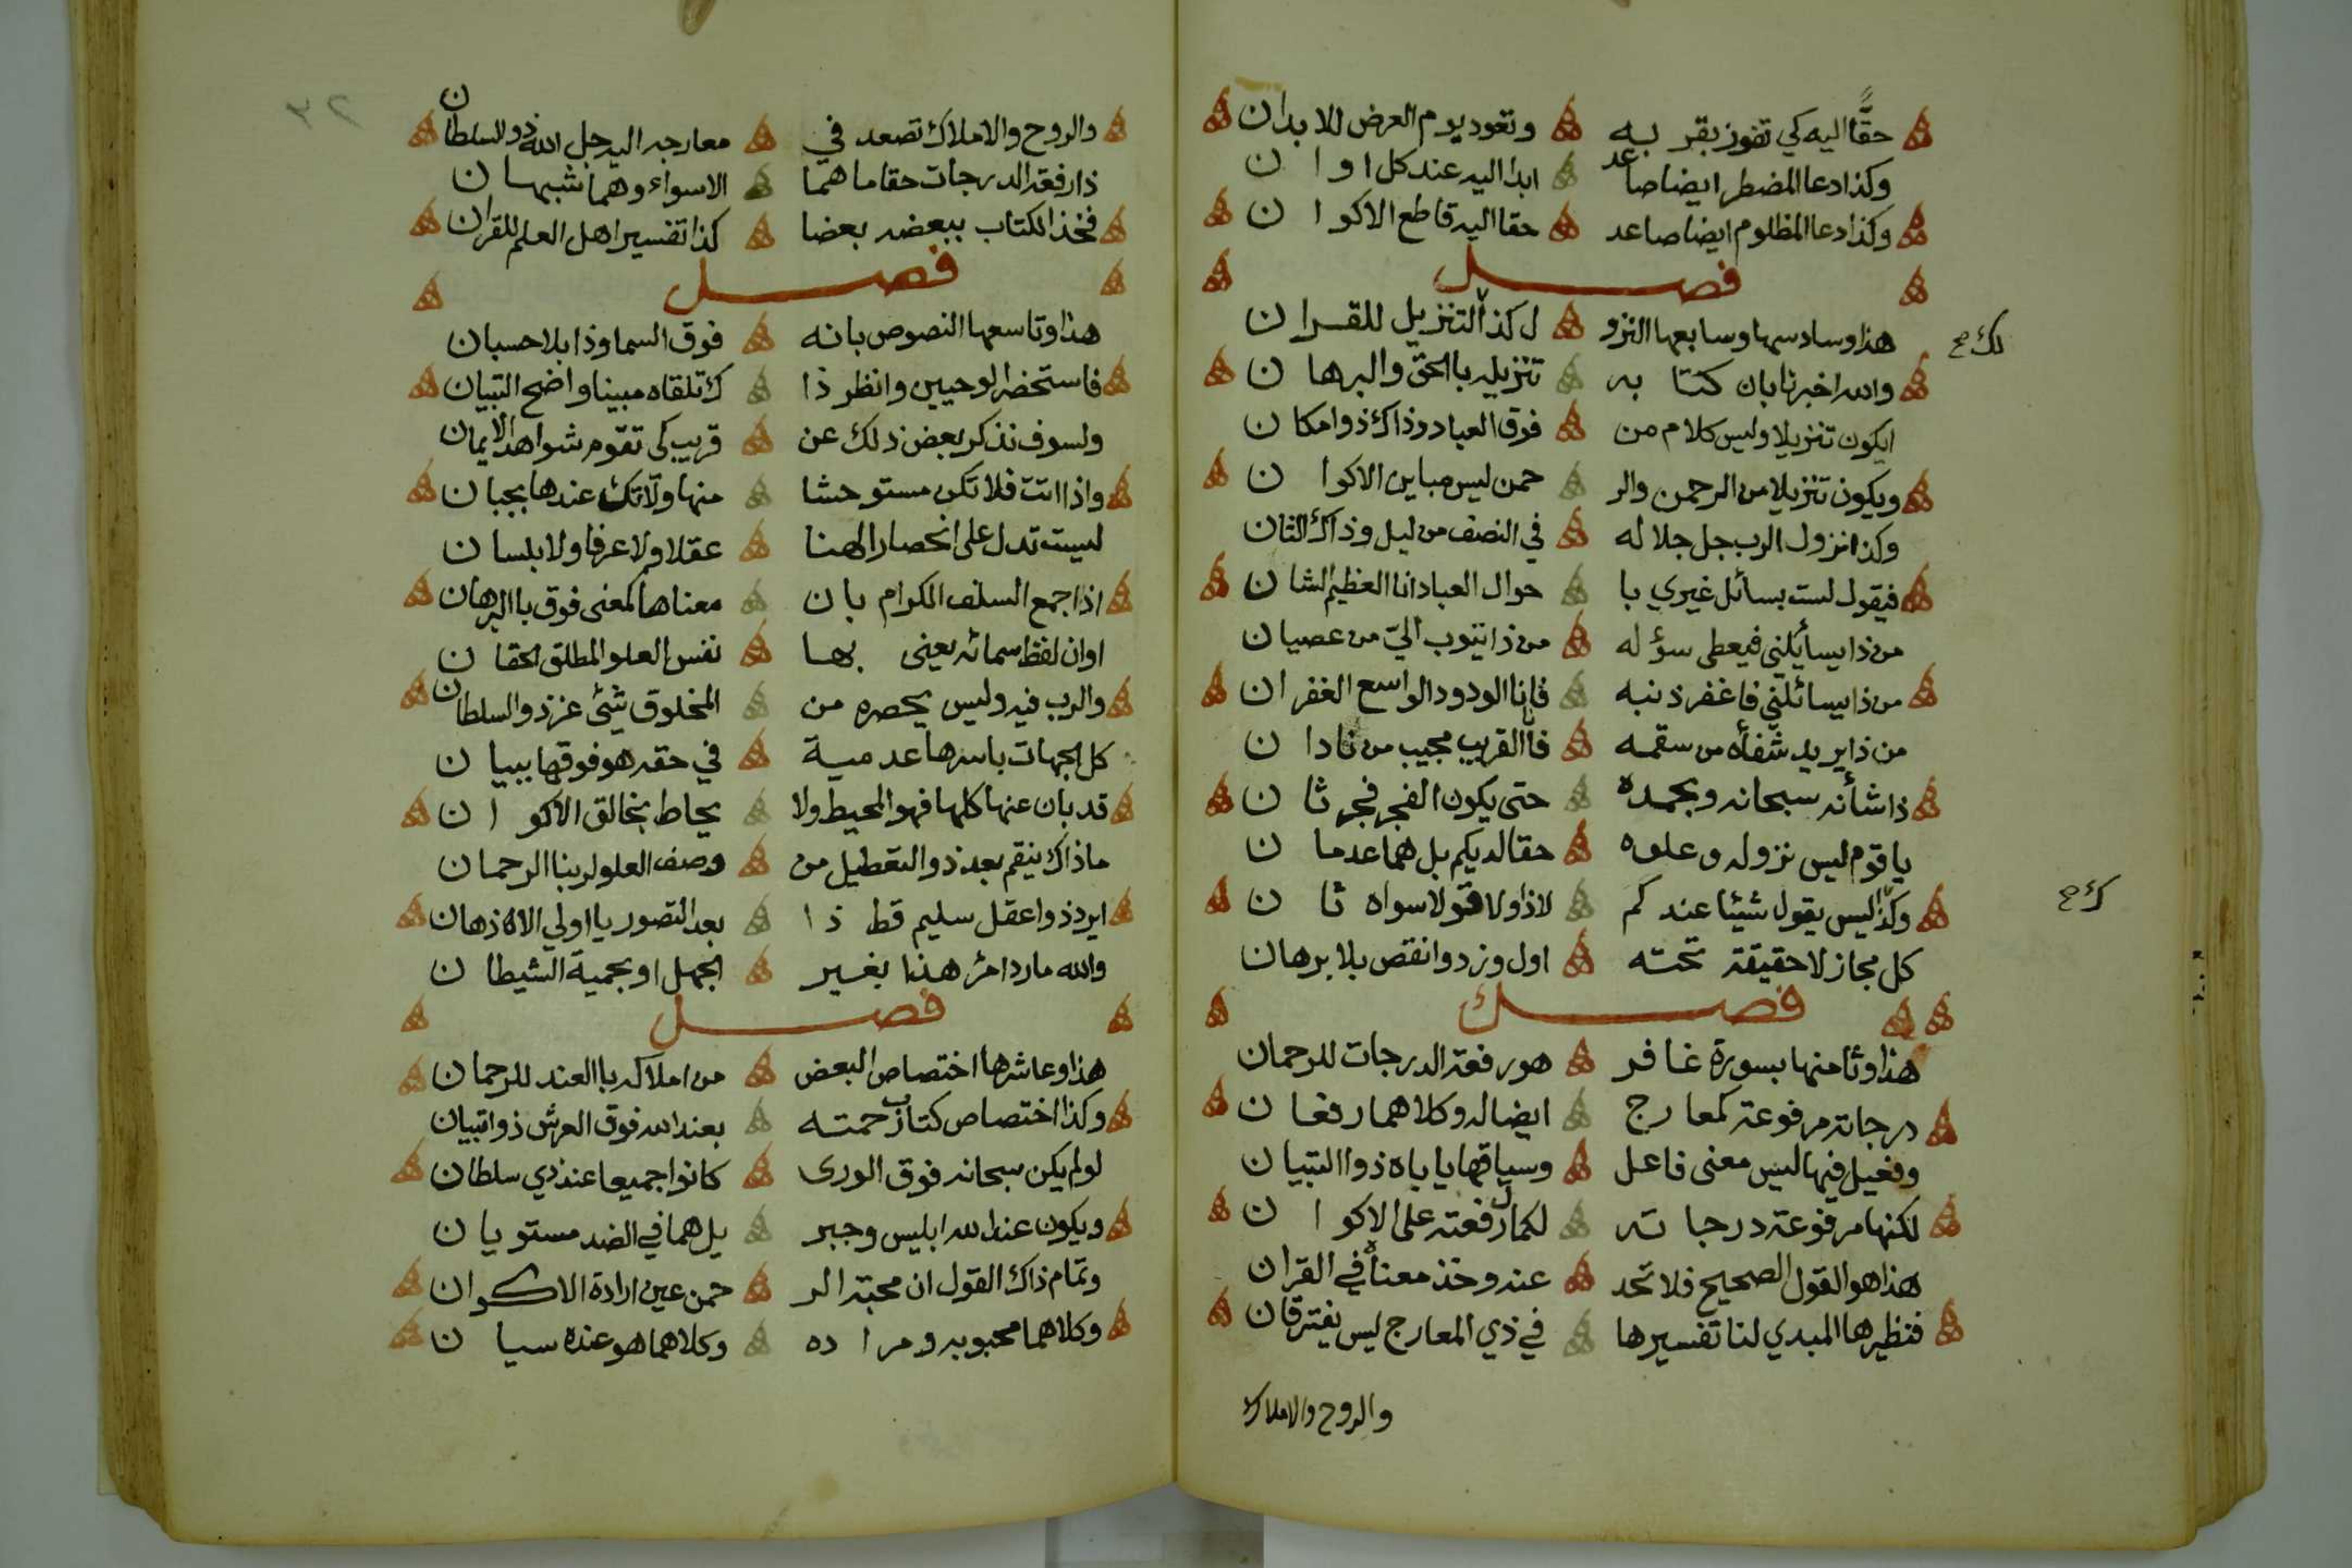 حقًّا اليه كي تفوز بقر به وتعود يوم العرض للابدان
وكذا دعا المضطر ايضا صاعد ابدا اليه عند كل اوان
وكذا دعا المظلوم ايضا صاعد حقا اليه قاطع الاكوان
فصل
هذا وسادسها وسابعها النزو ل كذا التنزيل للقران
والله اخبرنا بان كتابه تنزيله بالحق والبرهان
ايكون تنزيلا وليس كلام من فوق العباد وذاك ذو امكان
ويكون تنزيلا من الرحمن والر حمن ليس مباين الاكوان
وكذا نزول الرب جل جلاله في النصف من ليل وذاك الثان
فيقول لست بسائل غيري با حوال العباد انا العظيم الشان
من ذا يسأيلني فيعطى سؤله من ذا يتوب اليّ من عصيان
من ذا يسائلني فاغفر ذنبه فانا الودود الواسع الغفران
من ذا يريد شفأه من سقمه فانا القريب مجيب من نادان
ذا شأنه سبحانه وبحمده حتى يكون الفجر فجر ثان
يا قوم ليس نزوله وعلوه حقا لديكم بل هما عدمان
وكذا ليس يقول شيئا عندكم لا ذا ولا قولا سواه ثان
كل مجاز لا حقيقة تحته اول وزد وانقص بلا برهان
فصل
هذا وثامنها بسورة غافر هو رفعة الدرجات للرحمان
درجاته مرفوعة كمعارج ايضا له وكلاهما رفعان
وفعيل فيها ليس معنى فاعل وسياقها ياباه ذوا التبيان
لكنها مرفوعة درجاته لكمال رفعته على الاكوان
هذا هو القول الصحيح فلا تحد عنه وخذ معناه في القران
فنظيرها المبدي لنا تفسيرها في ذي المعارج ليس يفترقان
والروح والاملاك
لك ح
ك ح
٣٢
والروح والاملاك تصعد في معارجه اليه جل الله ذو السلطان
ذا رفعة الدرجات حقا ما هما الا سواء وهما شبهان
فخذ الكتاب ببعضه بعضا كذا تفسير اهل العلم للقران
فصل
هذا وتاسعها النصوص بانه فوق السما وذا بلا حسبان
فاستحضر الوحيين وانظر ذا ك تلقاه مبينا واضح التبيان
ولسوف نذكر بعض ذلك عن قريب كي تقوم شواهد الايمان
واذا اتت فلا تكن مستوحشا منها ولا تك عندها بجبان
ليست تدل على انحصار الهنا عقلا ولا عرفا ولا بلسان
اذا جمع السلف الكرام بان معناها كمعنى فوق باالبرهان
اوان لفظ سمائه يعنى بها نفس العلو المطلق الحقان
والرب فيه وليس يحصره من المخلوق شئى عز ذو السلطان
كل الجهات باسرها عدمية في حقه هو فوقها ببيان
قد بان عنها كلها فهو المحيط ولا يحاط بخالق الاكوان
ما ذاك ينقم بعد ذو التعطيل من وصف العلو لربنا الرحمان
ايرد ذوا عقل سليم قط ذا بعد التصور يا اولي الاذهان
والله ما رد امرء هذا بغير الجهل او بحمية الشيطان
فصل
هذا وعاشرها اختصاص البعض من املاكه باالعند للرحمان
وكذا اختصاص كتاب رحمته بعند الله فوق العرش ذو اتبيان
لو لم يكن سبحانه فوق الورى كانوا جميعا عند ذي سلطان
ويكون عند الله ابليس وجبر يل هما في الضد مستويان
وتمام ذاك القول ان محبة الر حمن عين ارادة الاكوان
وكلاهما محبوبه ومراده وكلاهما هو عنده سيان